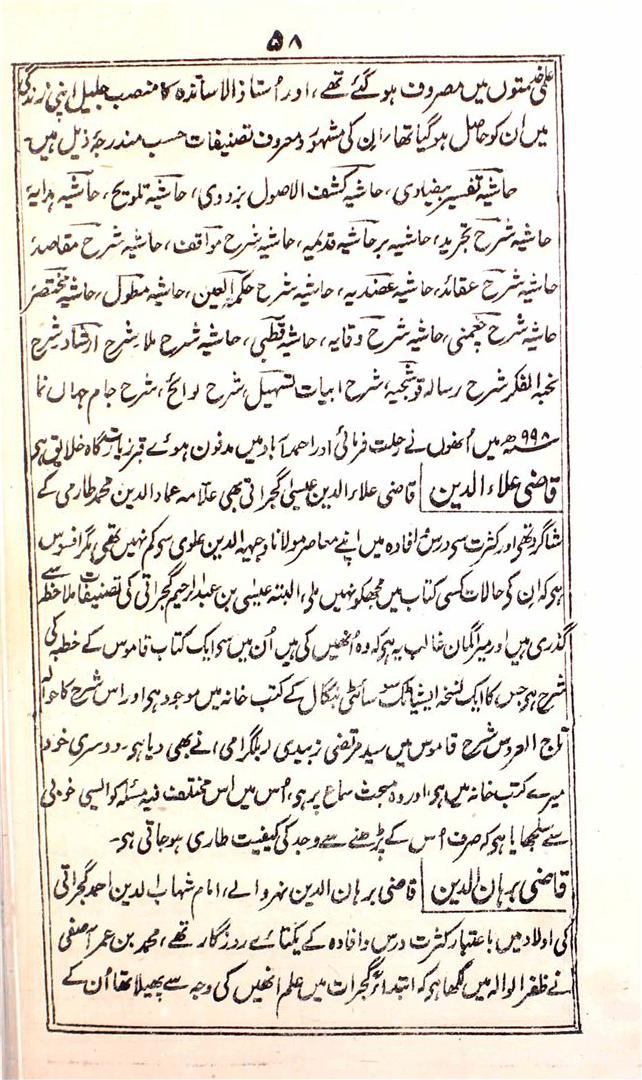 ۵۸
علمی خدمتوں میں مصروف ہو گئے تھے، اور اُستاذ الاساتذہ کا منصب جلیل اپنی زندگی
میں ان کو حاصل ہوگیا تھا، ان کی مشہور و معروف تصنیفات حسب مندرجہ ذیل ہیں۔
حاشیہ تفسیر بیضاوی، حاشیہ کشف الاصول بزدوی، حاشیہ تلویح، حاشیہ ہدایہ
حاشیہ شرح تجرید، حاشیہ بر حاشیہ قدیمہ، حاشیہ شرح مواقف، حاشیہ شرح مقاصد
حاشیہ شرح عقائد، حاشیہ عضدیہ، حاشیہ شرح حکمۃ العین، حاشیہ مطول، حاشیہ مختصر
حاشیہ شرح چغمنی، حاشیہ شرح وقایہ، حاشیہ قطبی، حاشیہ شرح ملا، شرح ارشاد، شرح
نخبۃ الفکر شرح رسالہ قوشجیہ، شرح ابیات تسہیل، شرح لوائح، شرح جام جہاں نما
۹۹۸ھ میں اُنھوں نے رحلت فرمائی اور احمد آباد میں مدفون ہوئے قبر زیارت گاہ خلایق ہی
قاضی علاء الدین قاضی علاء الدین عیسیٰ گجراتی بھی علامہ عماد الدین محمد طارمی کے
شاگرد تھی اور کثرت سی درس و افادہ میں اپنے معاصر مولانا وجیہ الدین علوی سی کم نہیں تھی، مگر افسوس
ہی کہ ان کی حالات کسی کتاب میں مجھکو نہیں ملی، البتہ عیسیٰ بن عبد الرحیم گجراتی کی تصنیفات ملاحظہ سے
گذری ہیں اور میرا گمان غالب یہ ہی کہ وہ اُنھیں کی ہیں اُن میں سی ایک کتاب قاموس کے خطبہ کی
شرح ہو جس کا ایک نسخہ ایشیاٹک سوسائٹی بنگال کے کتب خانہ میں موجود ہی اور اس شرح کا حوالہ
تاج العروس شرح قاموس میں سید مرتضیٰ زبیدی (بلگرامی) نے بھی دیا ہی۔ دوسری خود
میرے کتب خانہ میں ہی، اور وہ مبحث سماع پر ہی، اُس میں اس مختلف فیہ مسئلہ کو ایسی خوبی
سے سلجھایا ہی کہ صرف اُس کے پڑھنے سے وجد کی کیفیت طاری ہو جاتی ہی۔
قاضی برہان الدین قاضی برہان الدین نہروالے، امام شہاب الدین احمد گجراتی
کی اولاد میں باعتبار کثرت درس و افادہ کے یکتائے روزگار تھے، محمد بن عمر آصفی
نے ظفر الوالہ میں لکھا ہی کہ ابتداءً گجرات میں علم انھیں کی وجہ سے پھیلا تھا اُن کے